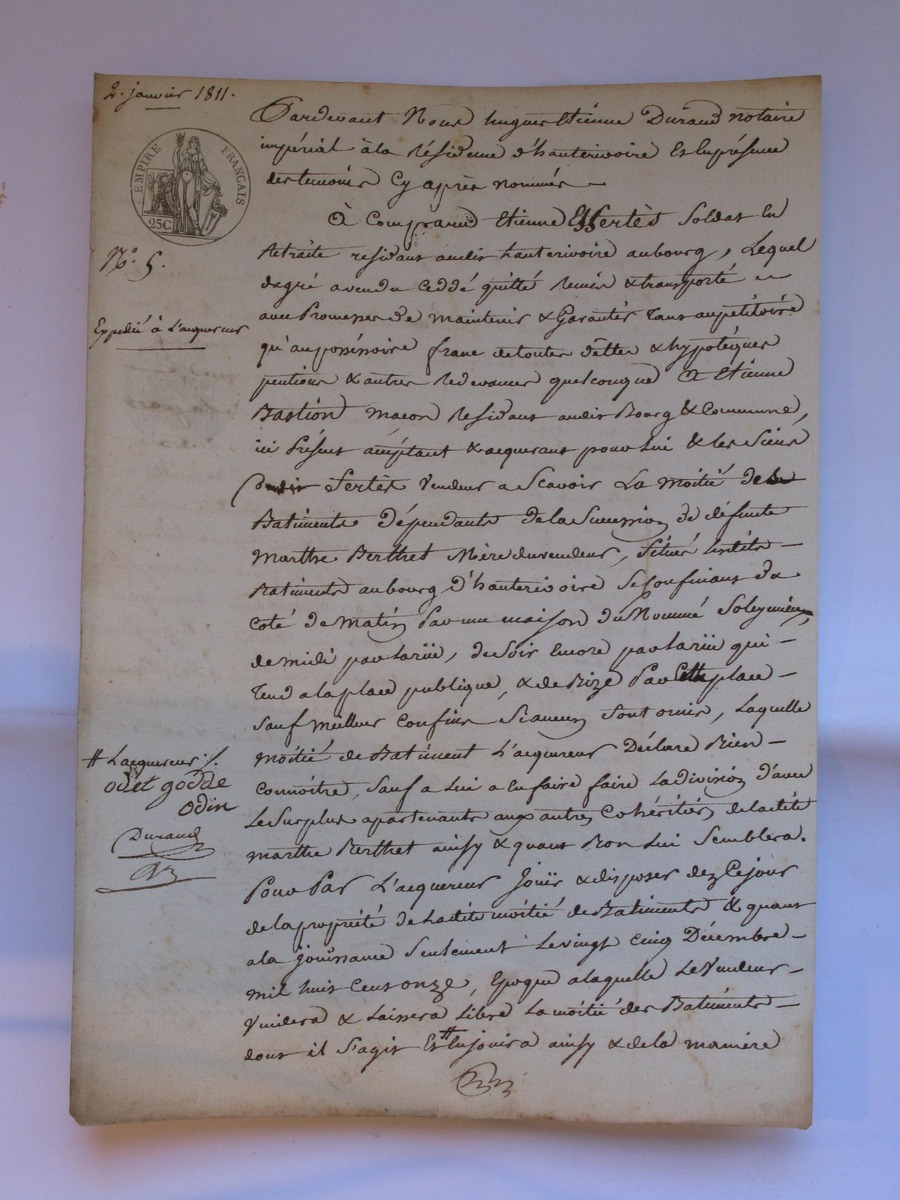 2. janvier 1811.
EMPIRE FRANÇAIS
25C
N.º 5.
Expédié à L'acquereur
Pardevant Nous hugues Etiénne Durand notaire
impérial à la Résidence d'hauterivoire Et En présence
des temoins Cy après nommés —
à Comparu Etienne ESSertès Soldat En
Retraite residant audit hauterivoire aubourg, Lequel
degré a vendu Ceddé quitté Remis & transporté
avec Promesse de maintenir & Garantir tant aupétitoire
qu'au posséssoire franc detoutes déttes & hypotéques
pentions & autres Redevances quelconque à Etiénne
Bastion macon Residant audit Bourg & Commune,
ici Présent acceptant & acquerant pour Lui & les Siens
dudit Sertès Vendeur a Scavoir La moitié de
Batiments dépendants de la Succession de défunte
marthe Berthet Mère duvendeur, Situés lesdits —
Batiments aubourg d'hauterivoire Se Confinant du
coté de matin Par une maison du Nommé Soleymieu,
de midi par la rüe, de Soir Encore par la rüe qui —
tend a la place publique, & de Bize Par Cette place —
Sauf meilleur Confins Si aucuns Sont omis, Laquelle
moitié de Batiment L'acquereur Déclare Bien —
Connoitre, Sauf a Lui a En faire faire La division d'avec
Le Surplus apartenants aux autres Cohéritiers de ladite
marthe Berthet ainsy & quant Bon Lui Semblera.
Pour Par L'acquereur Jouir & disposer dez Ce jour
de la propriété de Ladite moitié de Batiments & quant
a la jouissance Seulement Le vingt cinq Décembre —
mil huit Cent onze, Epoque a laquelle Le Vendeur —
Vuidera & Laissera Libre La moitié des Batiments —
dont il S'agit Et # En jouira ainsy & de la maniére
# L'acquereur ./.
odet godde
odin
Durand